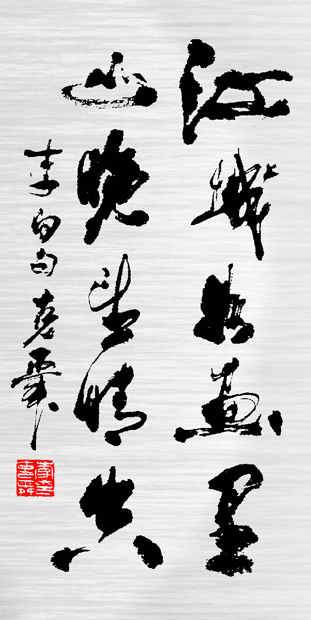 江城如畫里
山晚望晴空
李白句